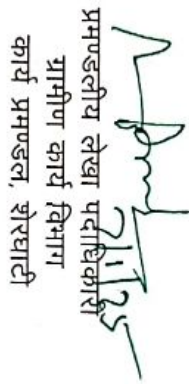 21/1/25
प्रमण्डलीय लेखा पदाधिकारी
ग्रामीण कार्य विभाग
कार्य प्रमण्डल, शेरघाटी